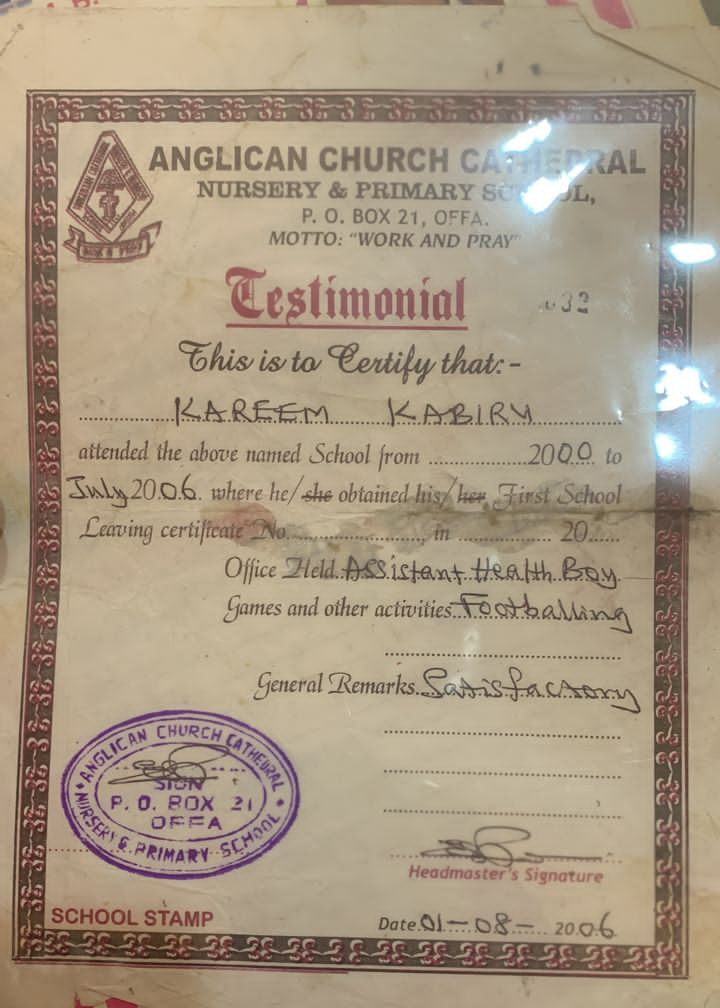 ANGLICAN CHURCH CATHEDRAL
NURSERY & PRIMARY SCHOOL,
P. O. BOX 21, OFFA.
MOTTO: "WORK AND PRAY"
WORK & PRAY
Testimonial
032
This is to Certify that:-
KAREEM KABIRU
attended the above named School from 2000 to
July 2006. where he/she obtained his/her First School
Leaving certificate No. , in 20
Office Held Assistant Health Boy
Games and other activities Footballing
General Remarks Satisfactory
ANGLICAN CHURCH CATHEDRAL
SIGN
P. O. BOX 21
OFFA
NURSERY & PRIMARY SCHOOL
Headmaster's Signature
SCHOOL STAMP
Date 01-08- 2006